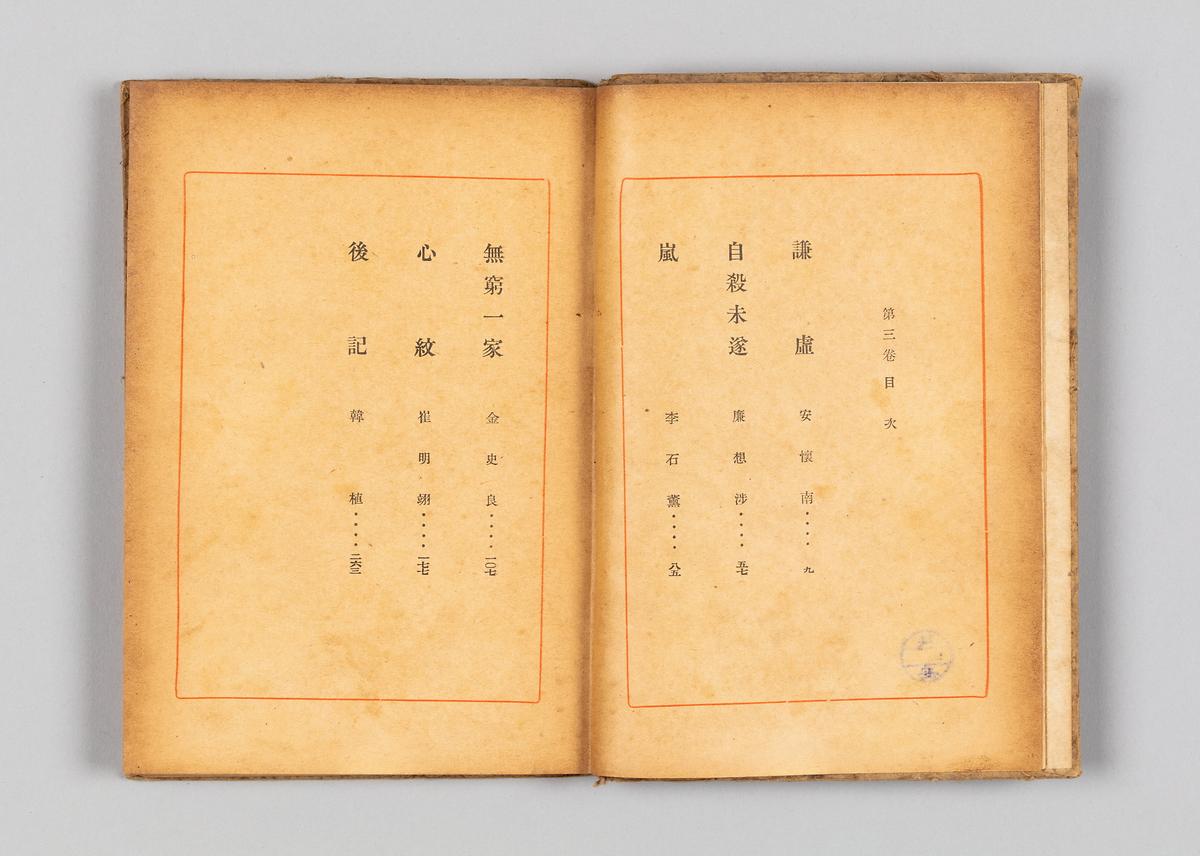 第三卷目次
謙虛 安懷南····九
自殺未遂 廉想涉·····五七
嵐 李石薰····八五
無窮一家 金史良····一〇七
心紋 崔明翊····一七七
後記 韓植····二六三